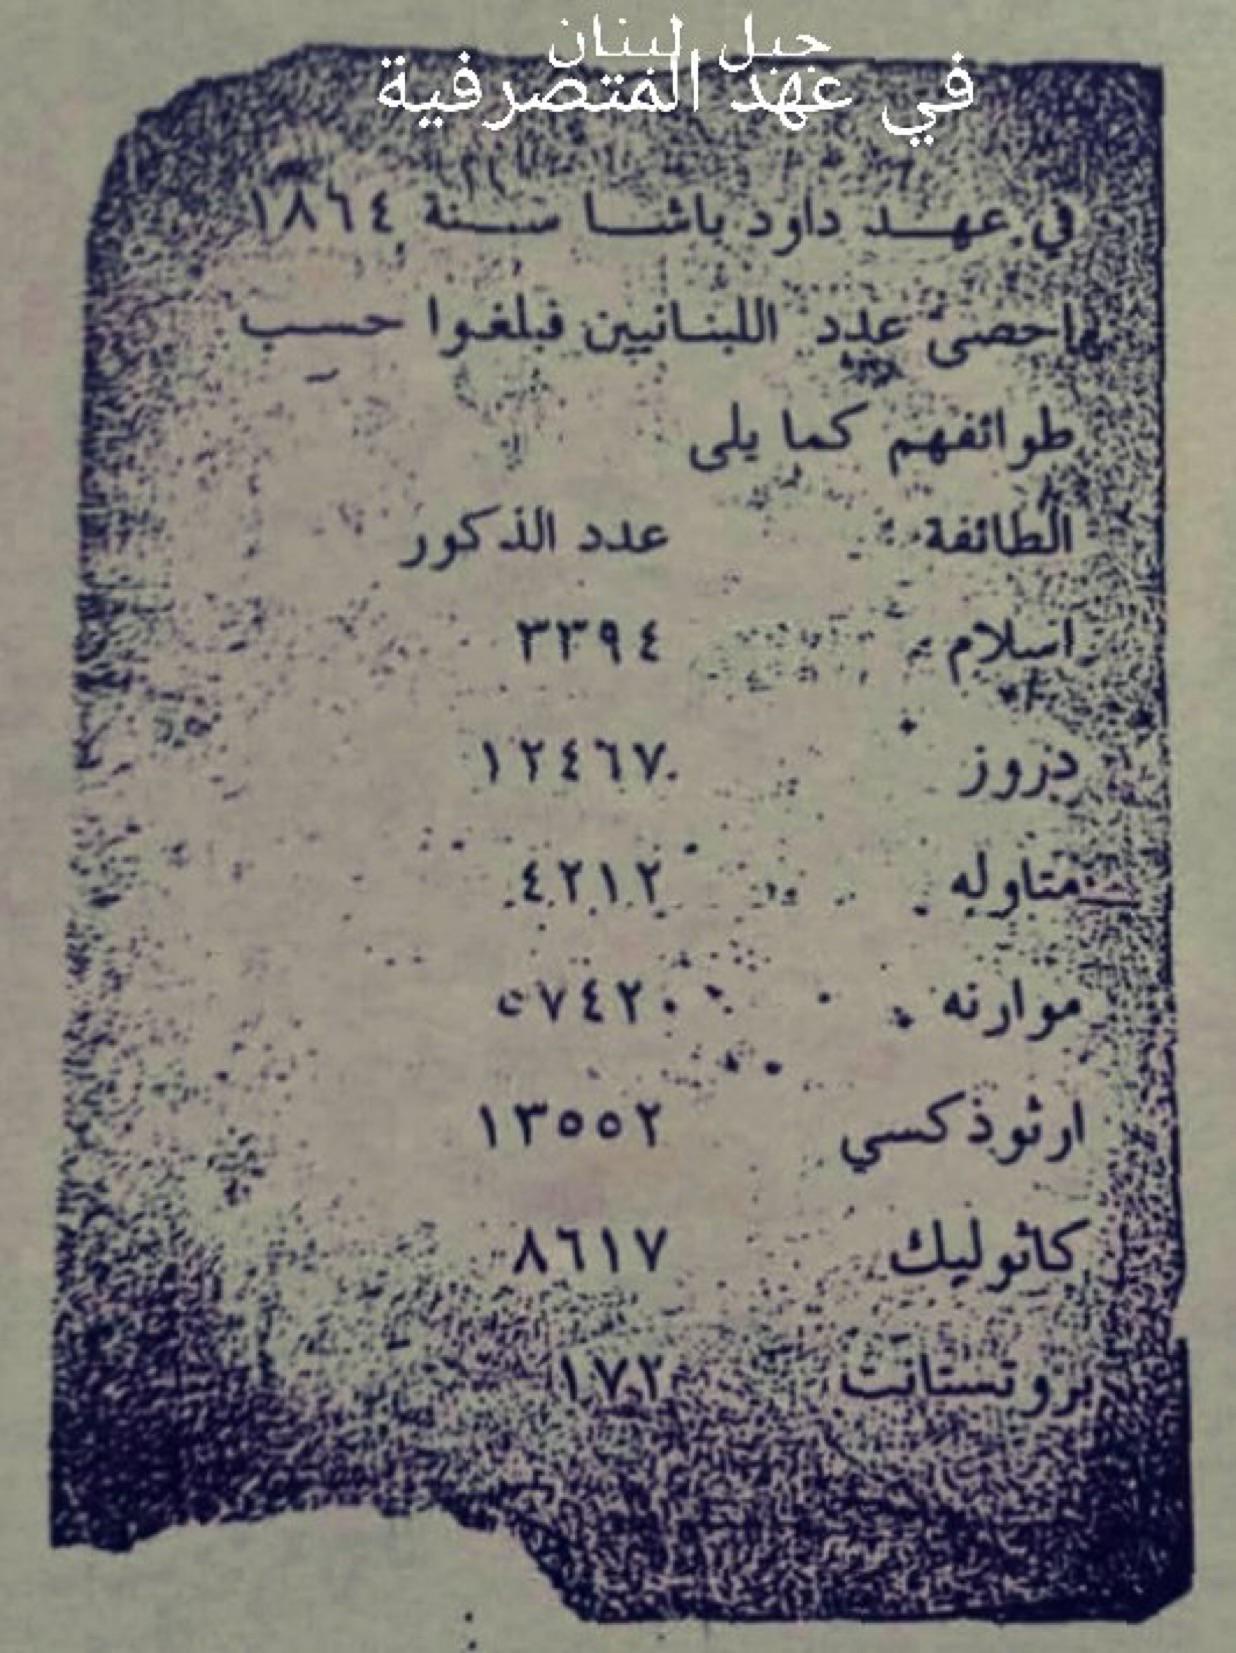 جبل لبنان
في عهد المتصرفية
في عهد داود باشا سنة ١٨٦٤
احصى عدد اللبنانيين فبلغوا حسب
طوائفهم كما يلى
الطائفة عدد الذكور
اسلام ٣٣٩٤
دروز ١٢٤٦٧
متاوله ٤٢١٢
موارنه ٥٧٤٢٠
ارثوذكسي ١٣٥٥٢
كاثوليك ٨٦١٧
بروتستانت ١٧٢